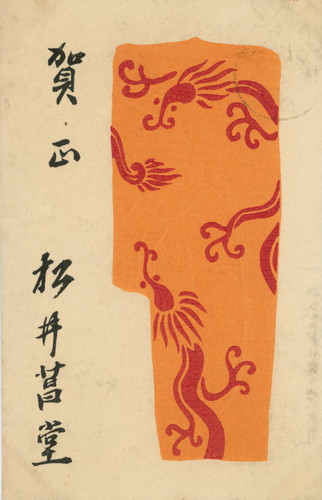 賀正
松井菖堂